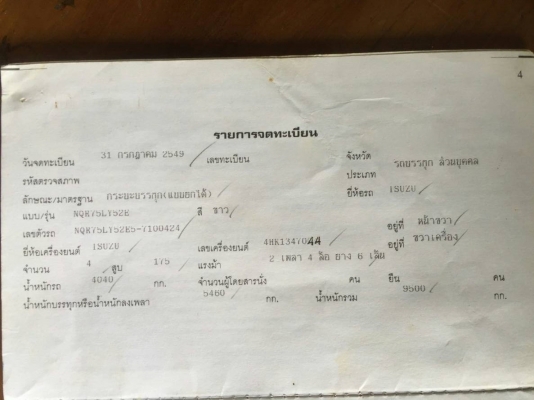 4
รายการจดทะเบียน
วันจดทะเบียน 31 กรกฎาคม 2549 เลขทะเบียน จังหวัด
รหัสตรวจสภาพ ประเภท รถบรรทุก ส่วนบุคคล
ลักษณะ/มาตรฐาน กระบะบรรทุก(แบบยกได้) ยี่ห้อรถ ISUZU
แบบ/รุ่น NQR75LYS2E สี ขาว
เลขตัวรถ NQR75LYS2E5-7100424 อยู่ที่ หน้าขวา
ยี่ห้อเครื่องยนต์ ISUZU เลขเครื่องยนต์ 4HK1347044 อยู่ที่ ขวาเครื่อง
จำนวน 4 สูบ 175 แรงม้า 2 เพลา 4 ล้อ ยาง 6 เส้น
น้ำหนักรถ 4040 กก. จำนวนผู้โดยสารนั่ง คน ยืน คน
น้ำหนักบรรทุกหรือน้ำหนักลงเพลา 5460 กก. น้ำหนักรวม 9500 กก.